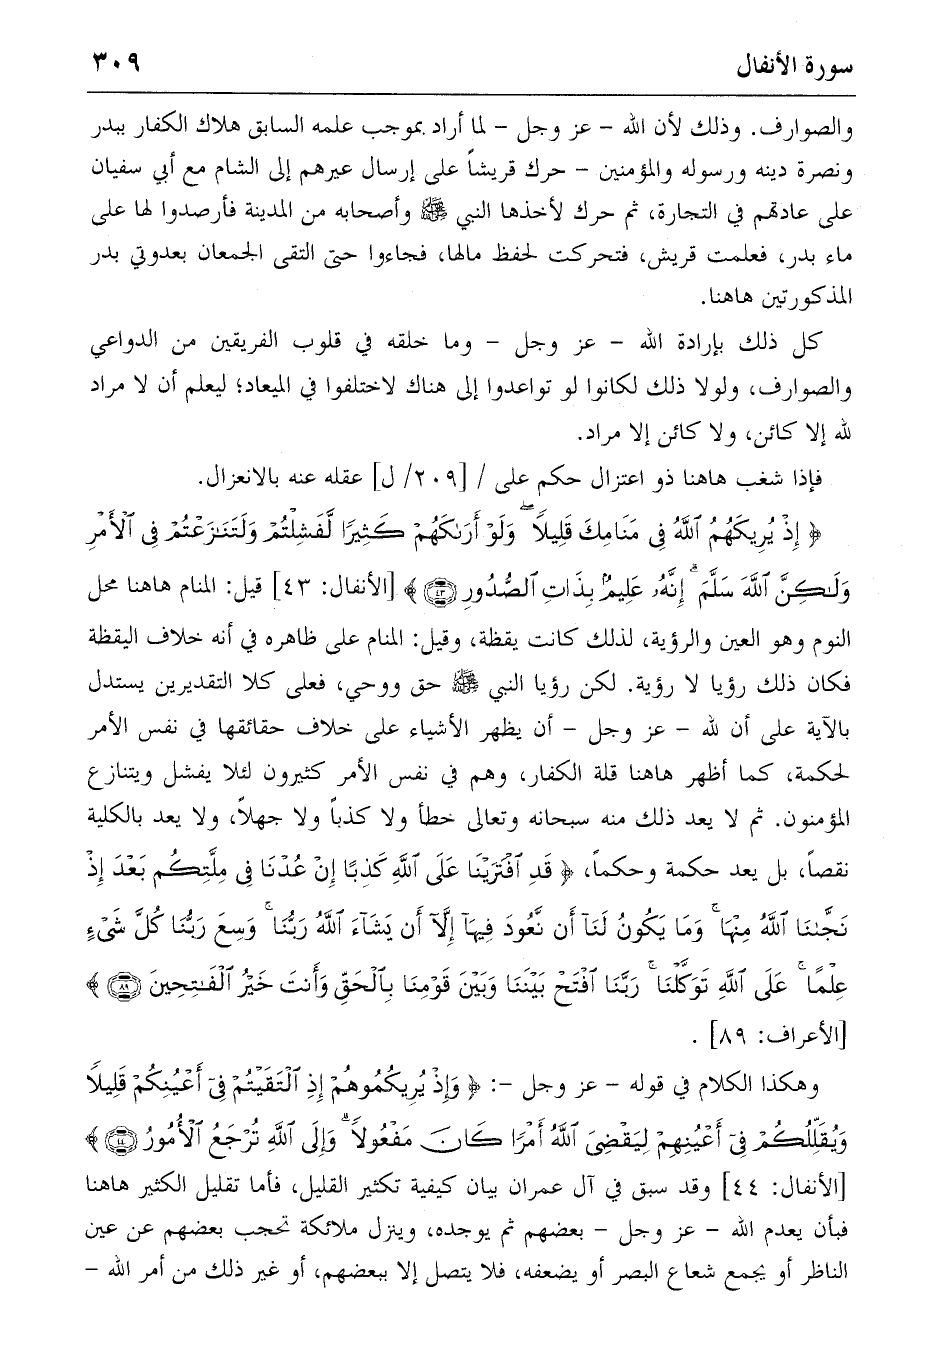 سورة الأنفال ٣٠٩
والصوارف. وذلك لأن الله – عز وجل – لما أراد بموجب علمه السابق هلاك الكفار ببدر
ونصرة دينه ورسوله والمؤمنين – حرك قريشاً على إرسال عيرهم إلى الشام مع أبي سفيان
على عادتهم في التجارة، ثم حرك لأخذها النبي ﷺ وأصحابه من المدينة فأرصدوا لها على
ماء بدر، فعلمت قريش، فتحركت لحفظ مالها، فجاءوا حتى التقى الجمعان بعدوتي بدر
المذكورتين هاهنا.
كل ذلك بإرادة الله – عز وجل – وما خلقه في قلوب الفريقين من الدواعي
والصوارف، ولولا ذلك لكانوا لو تواعدوا إلى هناك لاختلفوا في الميعاد؛ ليعلم أن لا مراد
لله إلا كائن، ولا كائن إلا مراد.
فإذا شغب هاهنا ذو اعتزال حكم على / [٢٠٩/ ل] عقله عنه بالانعزال.
﴿ إِذْ يُرِيكَهُمُ ٱللَّهُ فِى مَنَامِكَ قَلِيلًا ۖ وَلَوْ أَرَىٰكَهُمْ كَثِيرًا لَّفَشِلْتُمْ وَلَتَنَـٰزَعْتُمْ فِى ٱلْأَمْرِ
وَلَـٰكِنَّ ٱللَّهَ سَلَّمَ ۗ إِنَّهُۥ عَلِيمٌۢ بِذَاتِ ٱلصُّدُورِ ٤٣ ﴾ [الأنفال: ٤٣] قيل: المنام هاهنا محل
النوم وهو العين والرؤية، لذلك كانت يقظة، وقيل: المنام على ظاهره في أنه خلاف اليقظة
فكان ذلك رؤيا لا رؤية. لكن رؤيا النبي ﷺ حق ووحي، فعلى كلا التقديرين يستدل
بالآية على أن لله – عز وجل – أن يظهر الأشياء على خلاف حقائقها في نفس الأمر
لحكمة، كما أظهر هاهنا قلة الكفار، وهم في نفس الأمر كثيرون لئلا يفشل ويتنازع
المؤمنون. ثم لا يعد ذلك منه سبحانه وتعالى خطأ ولا كذباً ولا جهلاً، ولا يعد بالكلية
نقصاً، بل يعد حكمة وحكماً، ﴿ قَدِ ٱفْتَرَيْنَا عَلَى ٱللَّهِ كَذِبًا إِنْ عُدْنَا فِى مِلَّتِكُم بَعْدَ إِذْ
نَجَّىٰنَا ٱللَّهُ مِنْهَا ۚ وَمَا يَكُونُ لَنَآ أَن نَّعُودَ فِيهَآ إِلَّآ أَن يَشَآءَ ٱللَّهُ رَبُّنَا ۚ وَسِعَ رَبُّنَا كُلَّ شَىْءٍ
عِلْمًا ۚ عَلَى ٱللَّهِ تَوَكَّلْنَا ۚ رَبَّنَا ٱفْتَحْ بَيْنَنَا وَبَيْنَ قَوْمِنَا بِٱلْحَقِّ وَأَنتَ خَيْرُ ٱلْفَـٰتِحِينَ ٨٩ ﴾
[الأعراف: ٨٩] .
وهكذا الكلام في قوله – عز وجل –: ﴿ وَإِذْ يُرِيكُمُوهُمْ إِذِ ٱلْتَقَيْتُمْ فِىٓ أَعْيُنِكُمْ قَلِيلًا
وَيُقَلِّلُكُمْ فِىٓ أَعْيُنِهِمْ لِيَقْضِىَ ٱللَّهُ أَمْرًا كَانَ مَفْعُولًا ۗ وَإِلَى ٱللَّهِ تُرْجَعُ ٱلْأُمُورُ ٤٤ ﴾
[الأنفال: ٤٤] وقد سبق في آل عمران بيان كيفية تكثير القليل، فأما تقليل الكثير هاهنا
فبأن يعدم الله – عز وجل – بعضهم ثم يوجده، وينزل ملائكة تحجب بعضهم عن عين
الناظر أو يجمع شعاع البصر أو يضعفه، فلا يتصل إلا ببعضهم، أو غير ذلك من أمر الله –